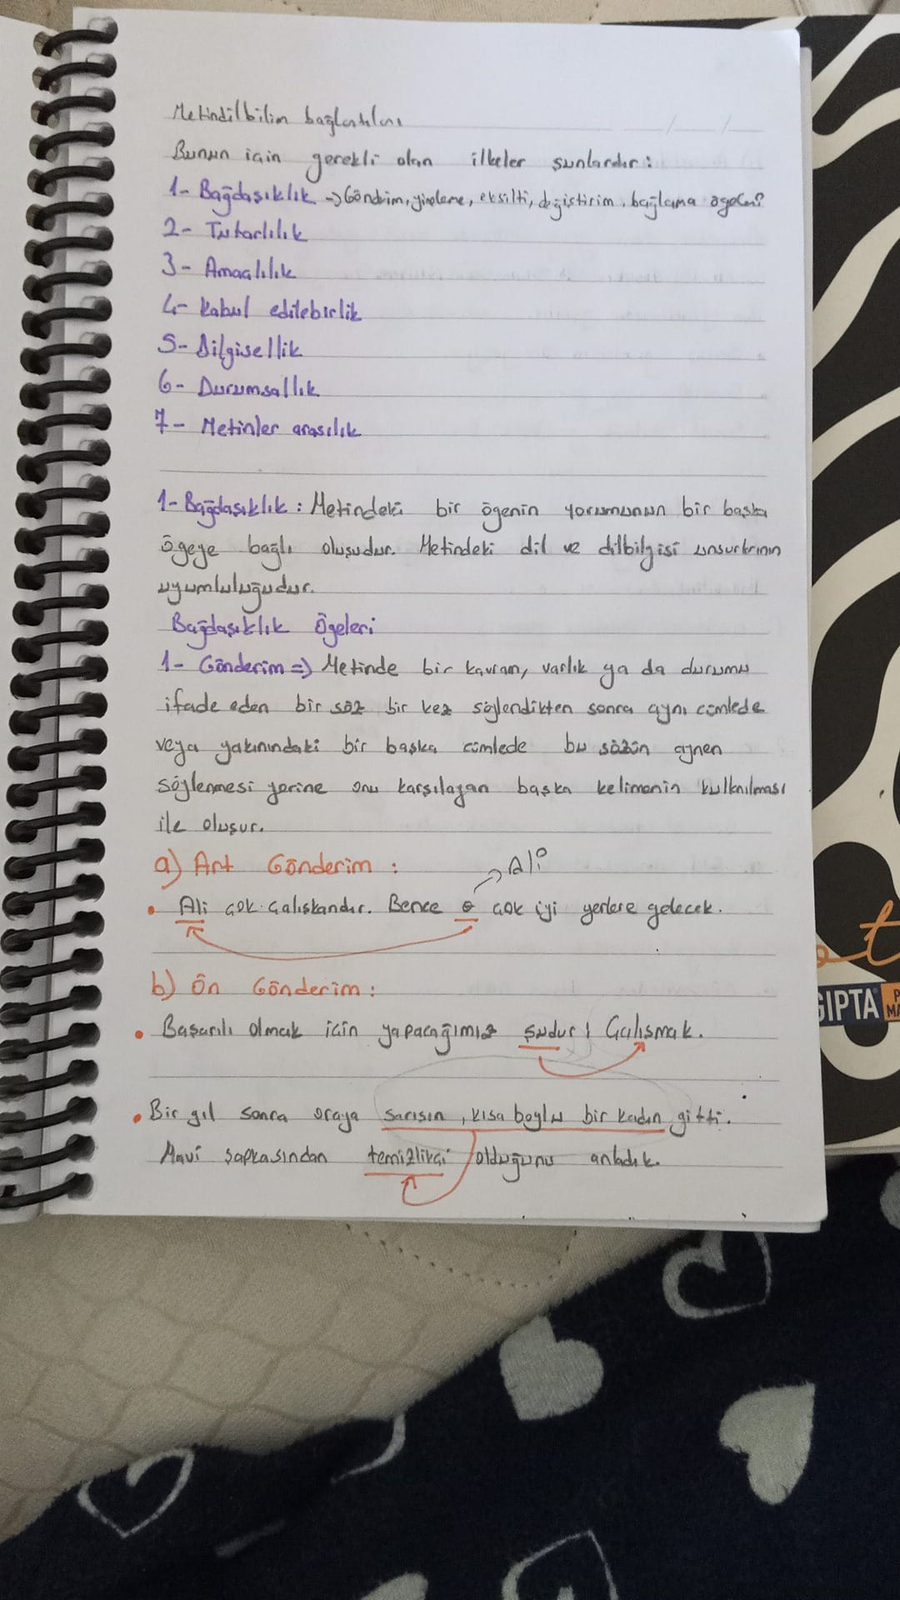 Metindilbilim bağlantıları
Bunun için gerekli olan ilkeler şunlardır:
1- Bağdaşıklık → Gönderim, yineleme, eksilti, değiştirim, bağlama ögeleri
2- Tutarlılık
3- Amaçlılık
4- Kabul edilebirlik
5- Bilgisellik
6- Durumsallık
7- Metinler arasılık
1- Bağdaşıklık: Metindeki bir ögenin yorumunun bir başka
ögeye bağlı oluşudur. Metindeki dil ve dilbilgisi unsurlarının
uyumluluğudur.
Bağdaşıklık Ögeleri
1- Gönderim => Metinde bir kavram, varlık ya da durumu
ifade eden bir söz bir kez söylendikten sonra aynı cümlede
veya yakınındaki bir başka cümlede bu sözün aynen
söylenmesi yerine onu karşılayan başka kelimenin kullanılması
ile oluşur.
a) Art Gönderim:
→ Ali
• Ali çok çalışkandır. Bence o çok iyi yerlere gelecek.
b) Ön Gönderim:
• Başarılı olmak için yapacağımız şudur: Çalışmak.
• Bir yıl sonra oraya sarışın, kısa boylu bir kadın gitti.
Mavi şapkasından temizlikçi olduğunu anladık.
GIPTA